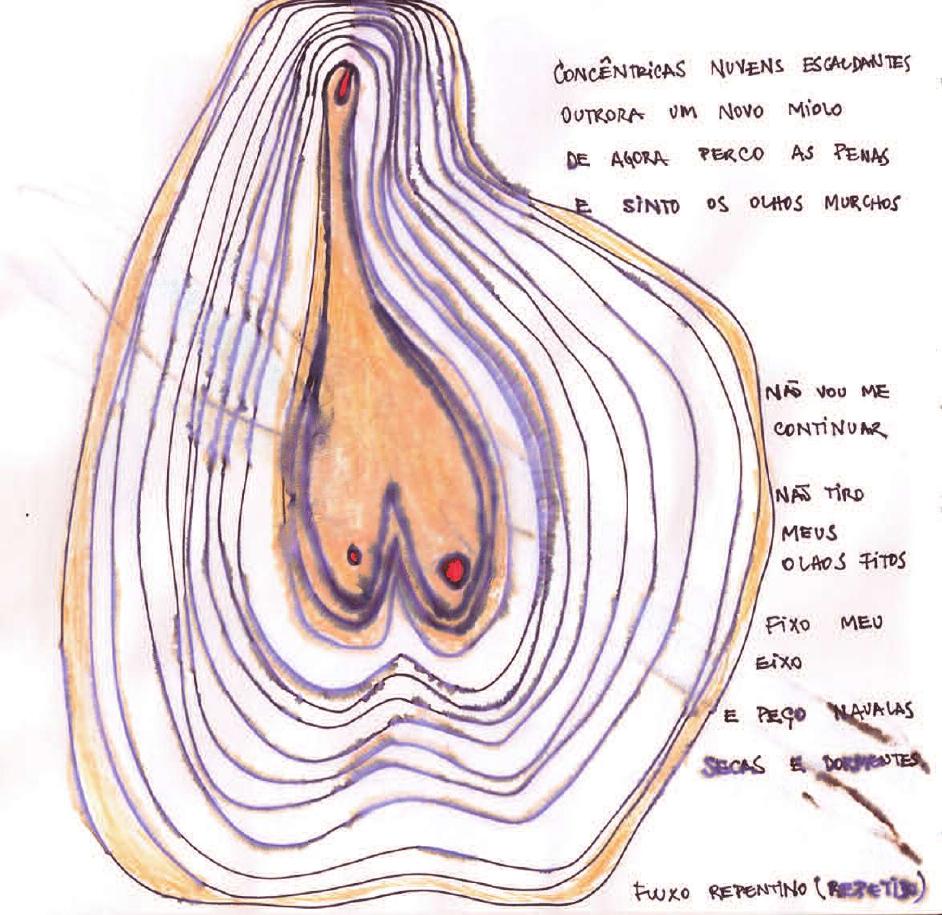 CONCÊNTRICAS NUVENS ESCALDANTES
OUTRORA UM NOVO MIOLO
DE AGORA PERCO AS PENAS
E SINTO OS OLHOS MURCHOS
NÃO VOU ME
CONTINUAR
NÃO TIRO
MEUS
OLHOS FITOS
FIXO MEU
EIXO
E PEÇO NAVALAS
SECAS E DORMENTES
FLUXO REPENTINO (REPETIDO)